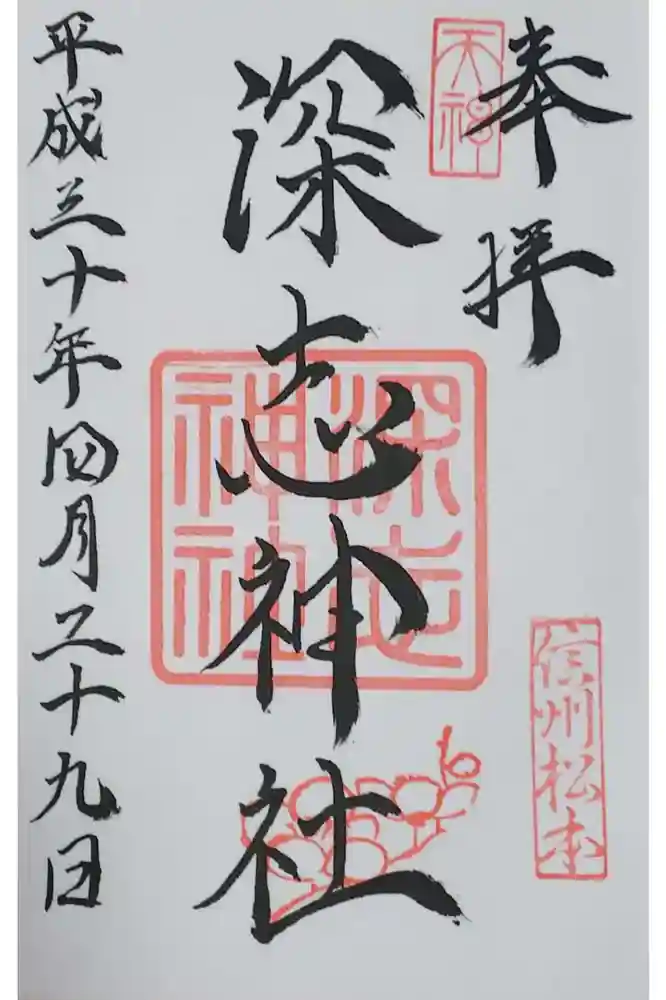 奉拝
天神
深志神社
深志神社
信州松本
平成三十年四月二十九日